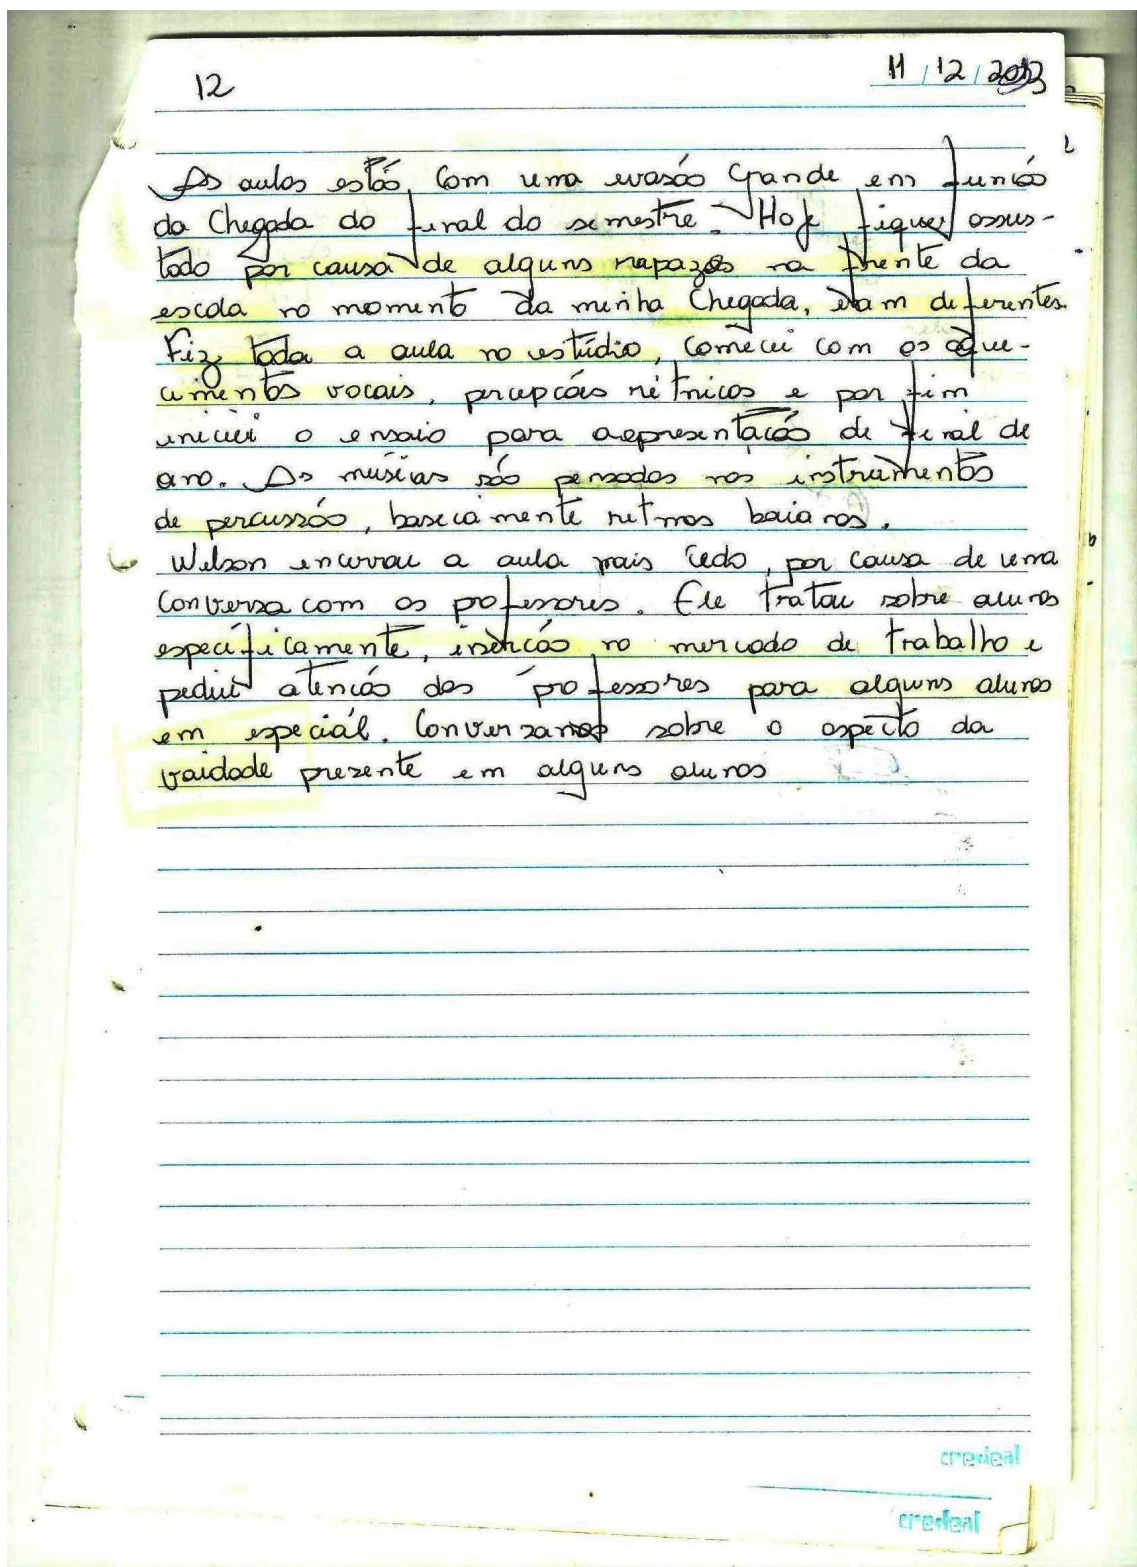 12
11/12/2013
As aulas estão com uma evasão grande em função
da chegada do final do semestre. Hoje fiquei assus-
tado por causa de alguns rapazes na frente da
escola no momento da minha chegada, eram diferentes.
Fiz toda a aula no estúdio, comecei com os aque-
cimentos vocais, percepções rítmicas e por fim
iniciei o ensaio para aepresentação de final de
ano. As músicas são pensadas nos instrumentos
de percussão, basicamente ritmos baianos.
Welson encerrou a aula mais cedo, por causa de uma
conversa com os professores. Ele tratou sobre alunos
específicamente, inserção no mercado de trabalho e
pediu atenção dos professores para alguns alunos
em especiál. Conversamos sobre o aspecto da
vaidade presente em alguns alunos
credeal
credeal